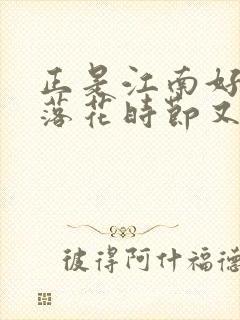 正是江南好
落花时節又
彼得阿什福德